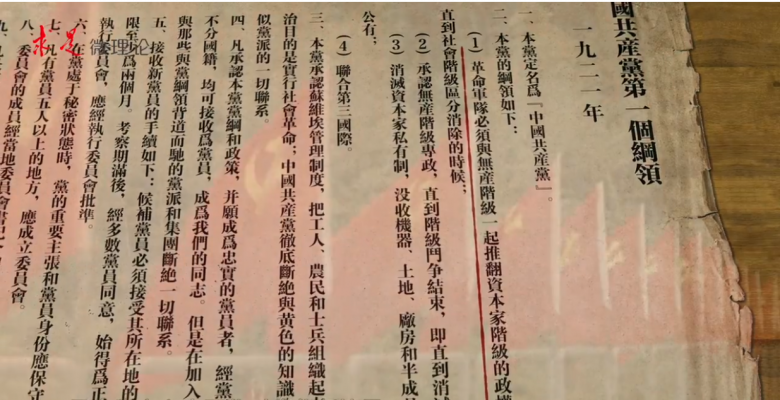 國共産黨第一個綱領
一九二一年
一、本黨定名爲『中國共産黨』。
二、本黨的綱領如下：
（1）革命軍隊必須與無産階級一起推翻資本家階級的政權
直到社會階級區分消除的時候；
（2）承認無産階級專政，直到階級鬥争結束，即直到消滅
（3）消滅資本家私有制，没收機器、土地、廠房和半成
公有；
（4）聯合第三國際。
三、本黨承認蘇維埃管理制度，把工人、農民和士兵組織起
治目的是實行社會革命；中國共産黨徹底斷絶與黄色的知識
似黨派的一切聯系。
四、凡承認本黨黨綱和政策，并願成爲忠實的黨員者，經黨
不分國籍，均可接收爲黨員，成爲我們的同志。但是在加入
與那些與黨綱領背道而馳的黨派和集團斷絶一切聯系。
五、接收新黨員的手續如下：候補黨員必須接受其所在地的
限至 爲兩個月。考察期滿後，經多數黨員同意，始得爲正
執行 員會，應經執行委員會批準。
六、在黨處于秘密狀態時，黨的重要主張和黨員身份應保守
七、凡有黨員五人以上的地方，應成立委員會。
八、委員會的成員經當地委員會書記
九、
求是
微理论